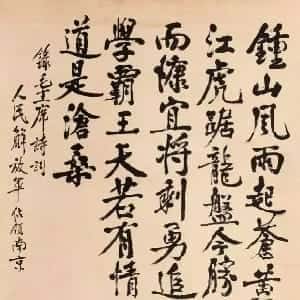 鍾山風雨起蒼黃
江虎踞龍盤今勝
而慷宜將剩勇追
學霸王天若有情
道是滄桑
錄毛主席詩詞
人民解放軍佔領南京